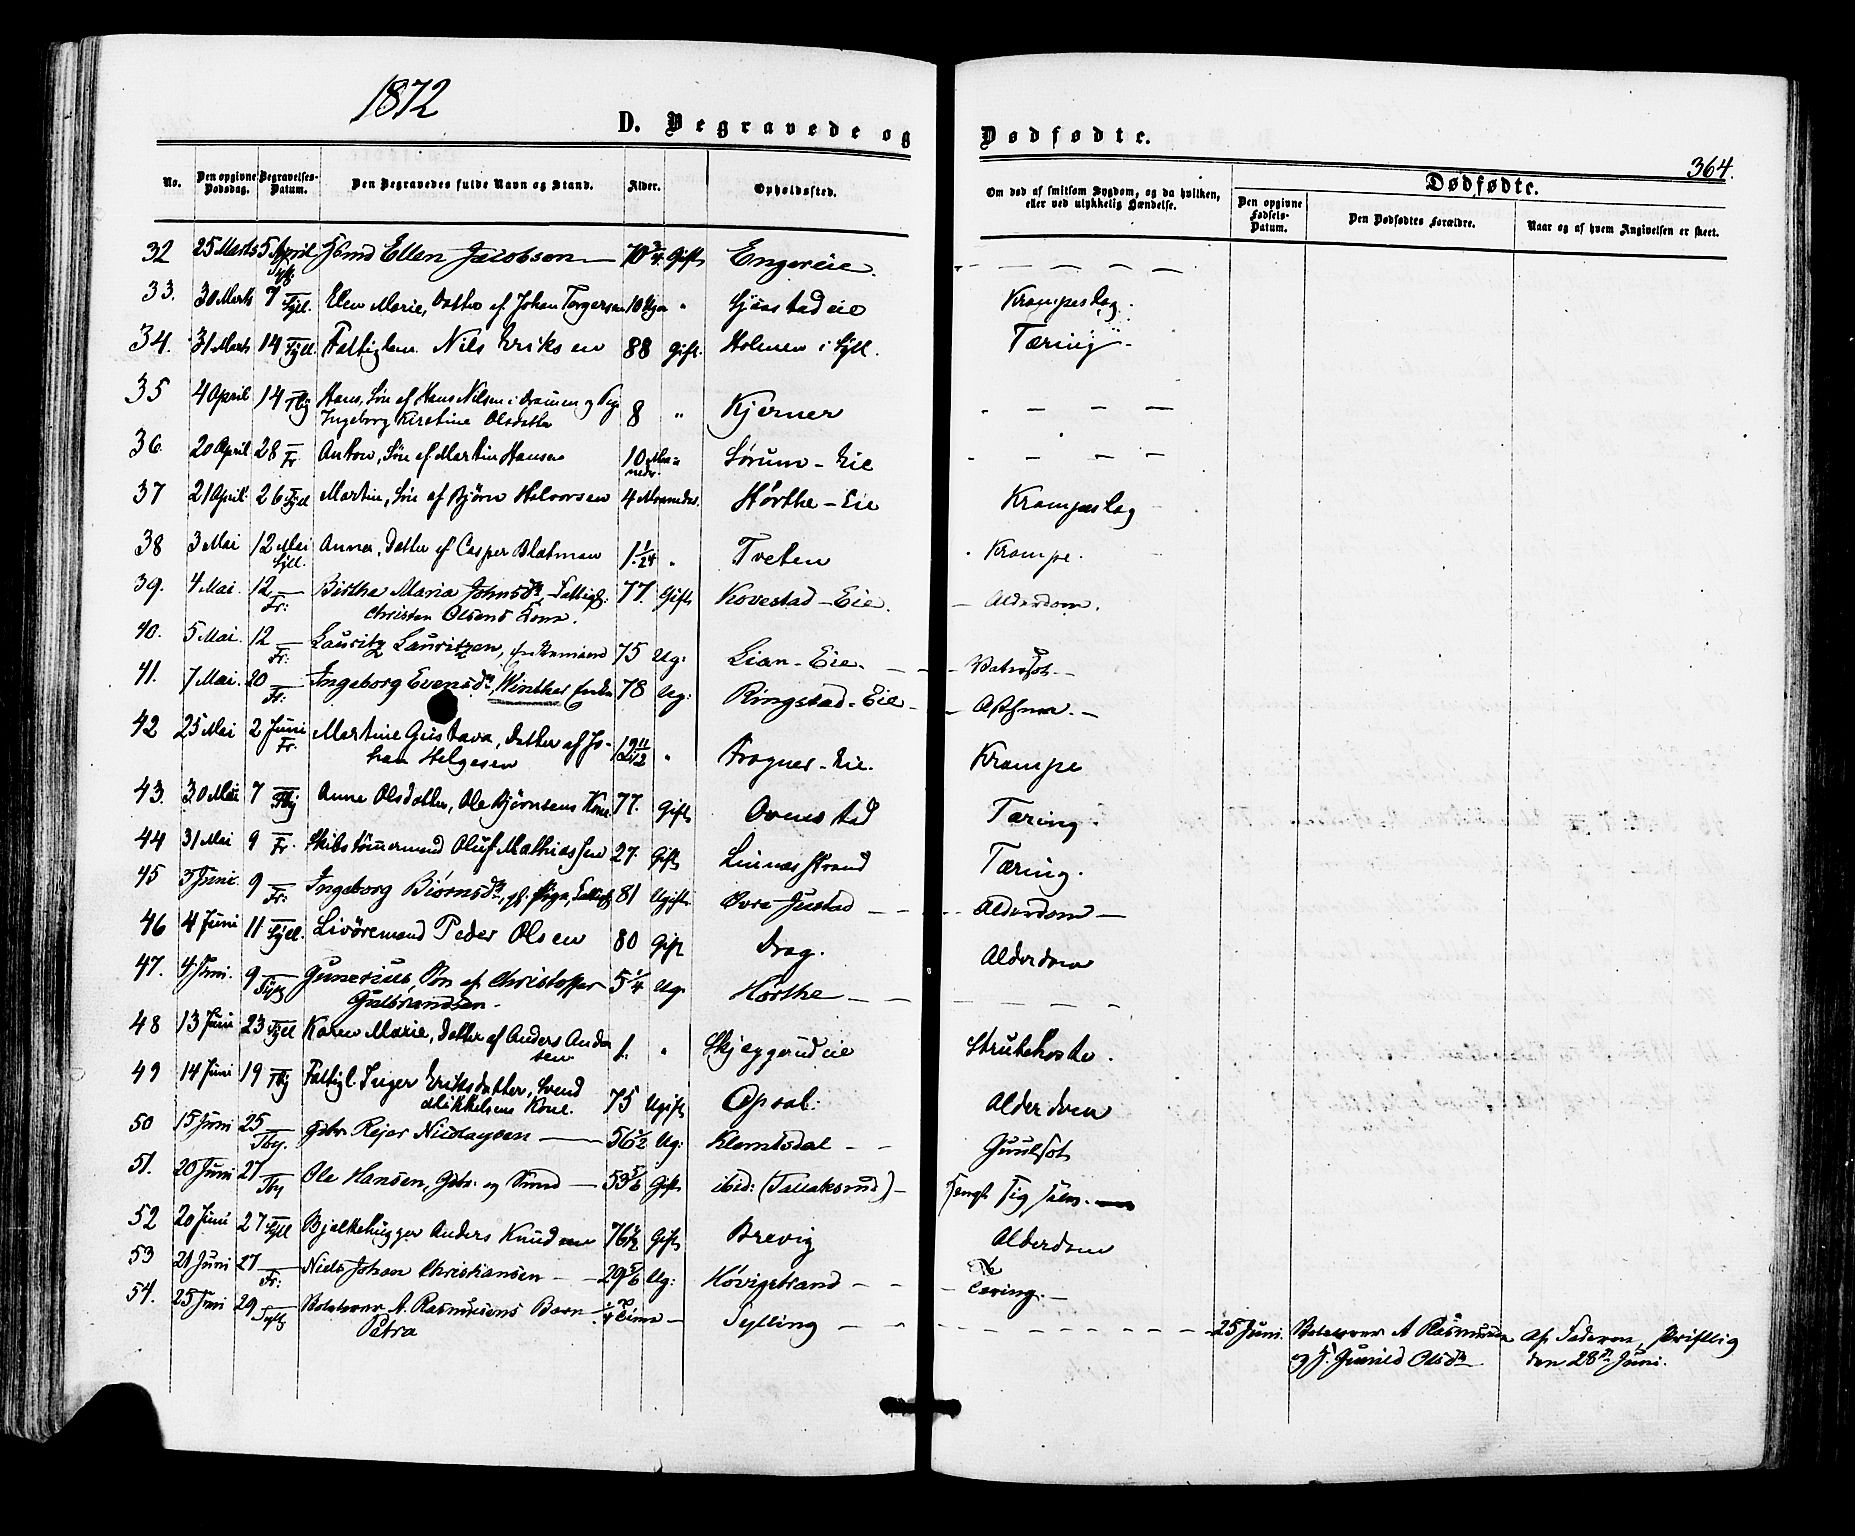 1872
D. Begravede og Dødfødte.
364.
No. Den opgivne Dødsdag. Begravelses-Datum. Den Begravedes fulde Navn og Stand. Alder. Opholdssted. Om død af smitsom Sygdom, og da hvilken, eller ved ulykkelig Hændelse. Dødfødte.
Den opgivne Fødsels-Datum. Den Dødfødtes Forældre. Naar og af hvem Angivelsen er skeet.
32 25 Marts 5 April Ellen Jacobsen 70 3/4 Gift Engereie.
33. 30 Marts 7 Sjll. Elen Marie, Datter af Johan Torgersen 10 Uger " Gjæstadeie Krampeslag.
34. 31 Marts 14 Sjll. Fattiglem Nils Eriksen 88 Gift. Holmen i Sjll. Tæring
35 4 April 14 Tby Hans, Søn af Hans Nilsen i Dramen og Pige
Ingeborg Kirstine Olsdatter 8 " Kjerner
36. 20 April 28 Fr. Anton, Søn af Martin Hansen 10 Maaneder Sørum-Eie
37 21 April 26 Sjll Martin, Søn af Bjørn Halvorsen 4 Maaneder. Hørthe-Eie Krampeslag
38 3 Mai 12 Mai Sjll. Anna, Datter af Casper Blatman 1 1/24 " Tveten Krampe.
39. 4 Mai. 12 Fr: Birthe Maria Johnsdr, Fattigl:
Christen Olsens Kone. 77. Gift Kovestad-Eie. Alderdom.
40. 5 Mai. 12 Fr: Lauritz Lauritzen, 75 Ug: Lian-Eie. Vatersot
41. 7 Mai. 20 Fr: Ingeborg Evensdr, Winther 78 Ug: Ringstad-Eie Asthma.
42 25 Mai 2 Juni Fr. Martine Gustava, Datter af Johan
Helgesen 12 11/12 " Fragnes-Eie. Krampe
43. 30 Mai 7 Tby Anne Olsdatter, Ole Bjørnsens Kone 77. Gift Ovnestad Tæring.
44 31 Mai 9 Fr. Skibstømmermand Oluf Mathiassen 27. Gift Linnesstrand Tæring.
45 3 Juni 9 Fr: Ingeborg Biørnsdr, gl. Pige, Fattigl 81 Ugift Øvre Justad Alderdom
46 4 Juni 11 Sjll. Livøremand Peder Olsen 80 Gift Drag. Alderdom
47. 4 Juni. 9 Gunerius, Søn af Christoffer
Gulbrandsen. 5 1/4 Ug. Hørthe
48 13 Juni 23 Sjll Karen Marie, Datter af Anders Andersen 1. " Skjæggerudeie Strubehoste.
49 14 Juni 19 Tby Fattigl. Inger Eriksdatter, Svend
Mikkelsens Kone. 75 Ugift Opsal. Alderdom
50 15 Juni 25 Tby. Gbr. Rejer Nicolaysen 56 1/2 Ug: Klemtsdal Guulsot
51. 20 Juni 27 Tby Ole Hansen, Gbr. og Smed 53 5/6 Gift ibid: (Tallaksrud) Hengt sig selv.
52 20 Juni 27 Sjll Bjelkehugger Anders Knudsen 76 1/2 Gift Brevig Alderdom
53 21 Juni 27 Fr: Niels Johan Christiansen 29 5/6 Ug: Høvigstrand Tæring.
54. 25 Juni 29 Sylg A. Rasmusens Barn
Petra 1/4 Time Sylling 25 Juni. A Rasmusen
og H. Gunild Olsdr Af Faderen, skriftlig
den 28de Juni.